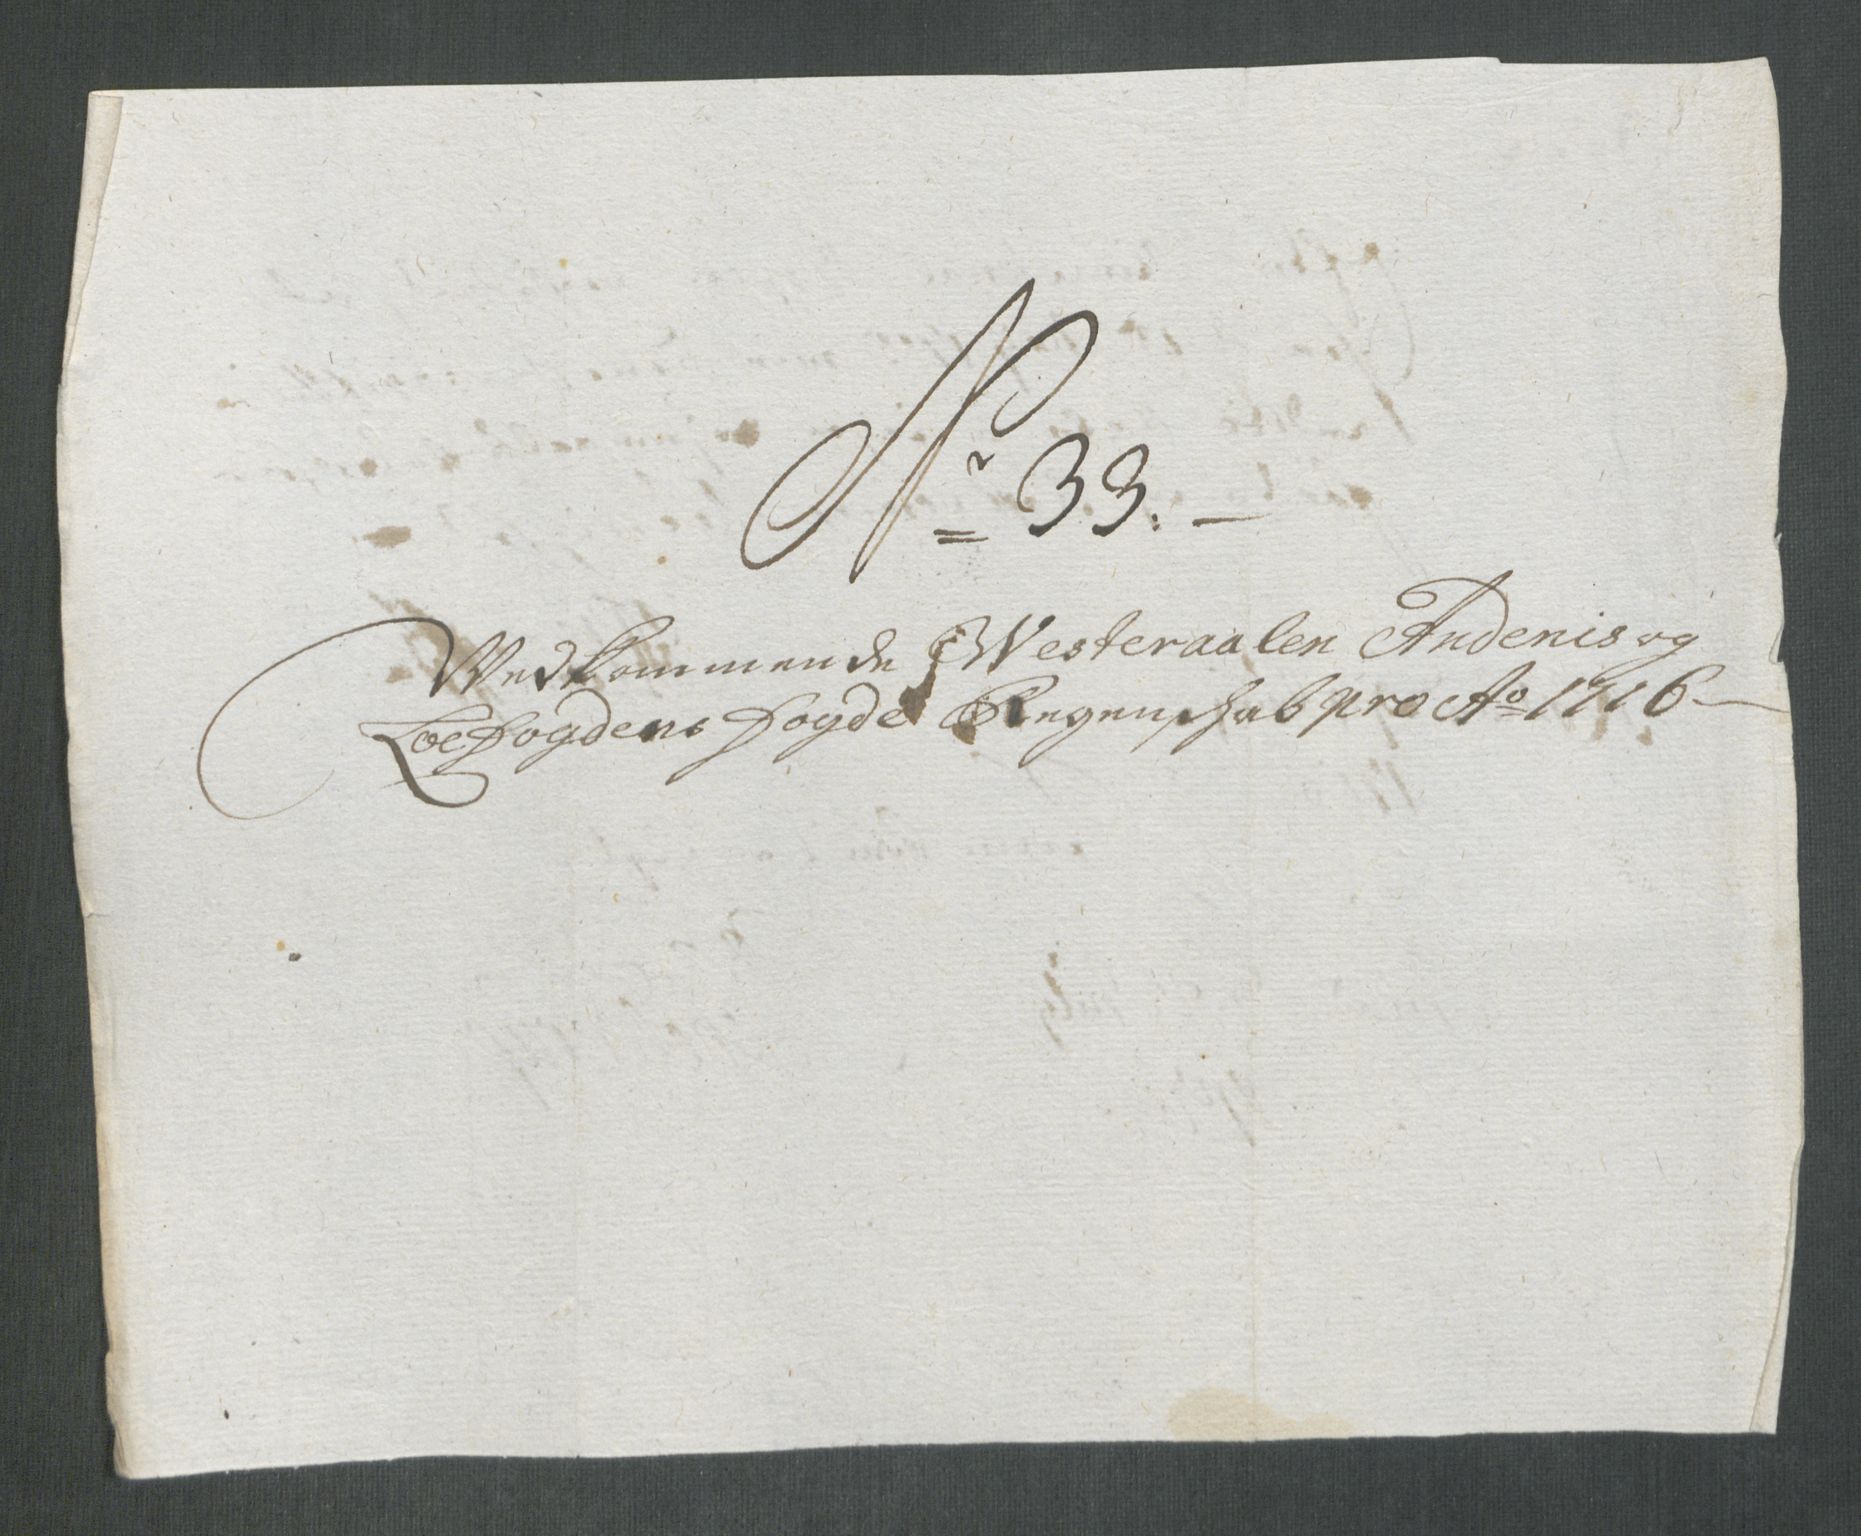 Nr 33. —
Vedkommende Westeraalen Andenis og
Loefogdens fogde Regenskab pro Ao 1716 —